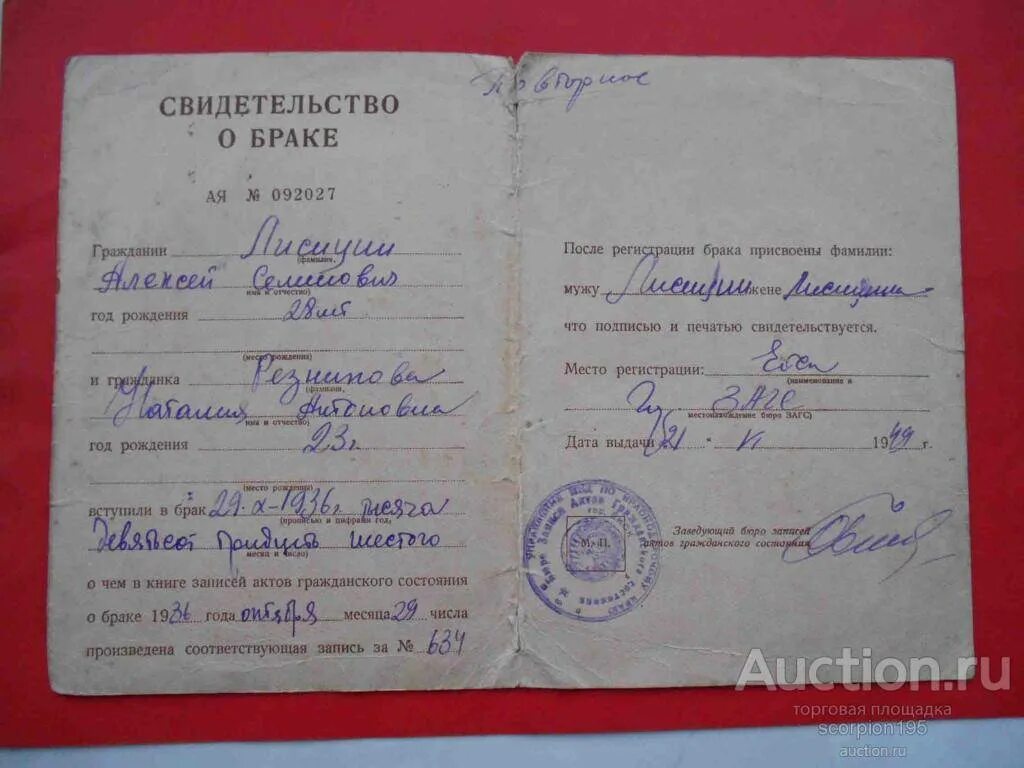 Повторное
СВИДЕТЕЛЬСТВО
О БРАКЕ
АЯ № 092027
Гражданин Лисицин
(фамилия,
Алексей Семенович
имя и отчество)
год рождения 28 лет
(место рождения)
и гражданка Резникова
(фамилия,
Наталия Антоновна
имя и отчество)
год рождения 23 г.
(место рождения)
вступили в брак 29-X-1936 г. тысяча
(прописью и цифрами год,
девятьсот тридцать шестого
месяц и число)
о чем в книге записей актов гражданского состояния
о браке 1936 года октября месяца 29 числа
произведена соответствующая запись за № 634
После регистрации брака присвоены фамилии:
мужу Лисицин жене Лисицина
что подписью и печатью свидетельствуется.
Место регистрации:
(наименование и
ЗАГС
местонахождение бюро ЗАГС)
Дата выдачи 21 VI 1949 г.
М. П.
Заведующий бюро записей
актов гражданского состояния
Auction.ru
торговая площадка
scorpion195
auction.ru